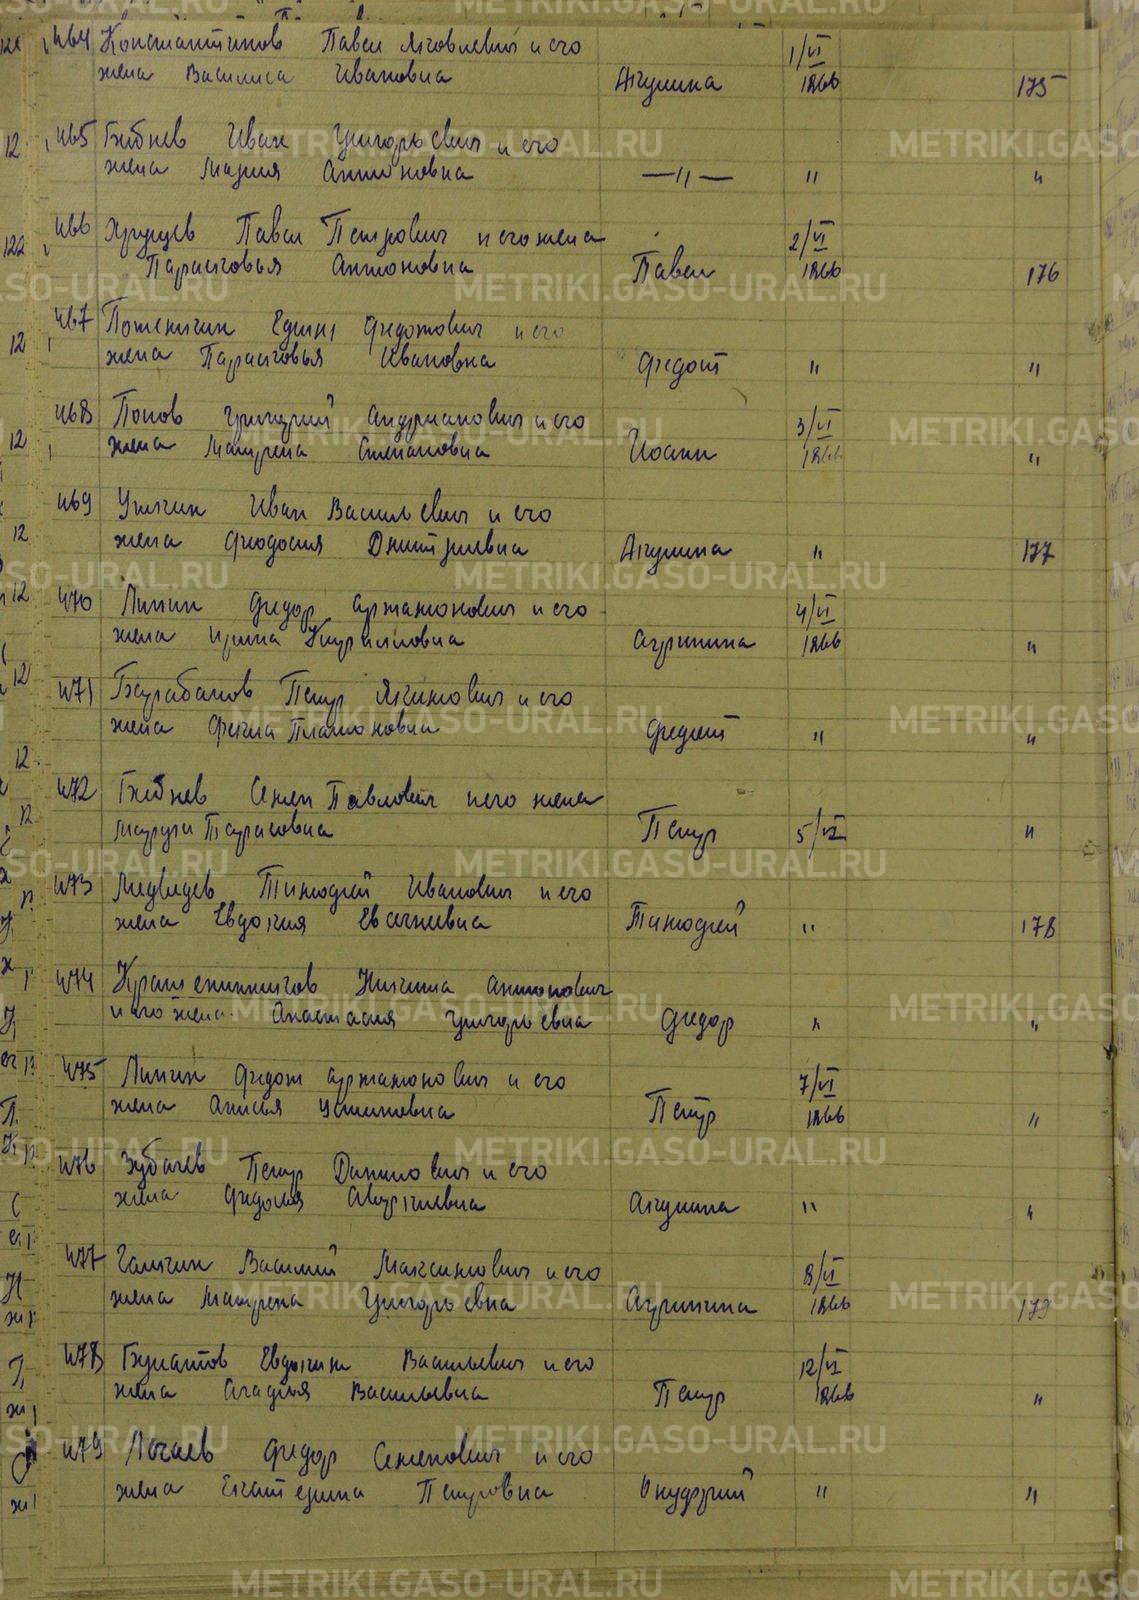 464 Константинов Павел Яковлевич и его
1/VI
жена Василиса Ивановна Акулина 1866 175
465 Иван Григорьевич и его
жена Мария Антоновна —"— " "
466 Хрущев Павел Петрович и его жена
2/VI
Парасковья Антоновна Павел 1866 176
467 Федотович и его
жена Парасковья Ивановна Федот " "
468 Попов Григорий Андрианович и его
3/VI
жена Матрена Степановна Иоанн 1866 "
469 Иван Васильевич и его
жена Феодосия Дмитриевна Акулина " 177
470 Липин Федор Артамонович и его
4/VI
жена Ирина Кирилловна Агрипина 1866 "
471 Барабанов Петр Якимович и его
жена Фекла Платоновна " "
472 Семен Павлович и его жена
Тарасовна Петр 5/VI "
473 Медведев Тимофей Иванович и его
жена Евдокия Евсеевна Тимофей " 178
474 Крашенинников Никита Антонович
и его жена Анастасия Григорьевна Федор " "
475 Липин Федот Артамонович и его
7/VI
жена Анисья Устиновна Петр 1866 "
476 Зубачев Петр Данилович и его
жена Акулина " "
477 Галкин Василий Максимович и его
8/VI
жена Матрена Григорьевна Агрипина 1866 179
478 Булатов Евдоким Васильевич и его
12/VI
жена Агафья Васильевна Петр 1866 "
479 Федор Семенович и его
жена Екатерина Петровна Онуфрий " "
METRIKI.GASO-URAL.RU